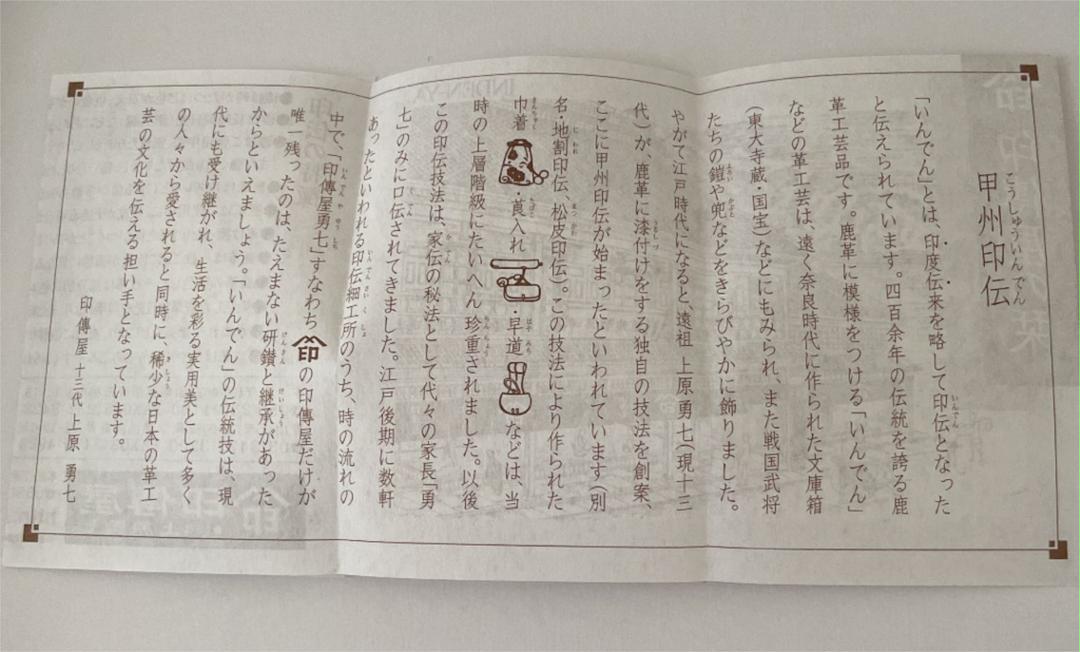 甲州印伝
こうしゅういんでん
「いんでん」とは、印度伝来を略して印伝となった
いんでん
と伝えられています。四百余年の伝統を誇る鹿
革工芸品です。鹿革に模様をつける「いんでん」
などの革工芸は、遠く奈良時代に作られた文庫箱
(東大寺蔵・国宝)などにもみられ、また戦国武将
たちの鎧や兜などをきらびやかに飾りました。
よろい かぶと
やがて江戸時代になると、遠祖 上原勇七(現十三
代)が、鹿革に漆付けをする独自の技法を創案、
うるしづ
ここに甲州印伝が始まったといわれています(別
名・地割印伝、松皮印伝)。この技法により作られた
じわれ まつかわ
巾着・莨入れ・早道などは、当
きんちゃく たばこ はやみち
時の上層階級にたいへん珍重されました。以後
ちんちょう
この印伝技法は、家伝の秘法として代々の家長「勇
かでん
七」のみに口伝されてきました。江戸後期に数軒
くでん
あったといわれる印伝細工所のうち、時の流れの
いんでんさいくしょ
中で、「印傳屋勇七」すなわち印の印傳屋だけが
いんでんやゆうしち
唯一残ったのは、たえまない研鑽と継承があった
けんさん けいしょう
からといえましょう。「いんでん」の伝統技は、現
代にも受け継がれ、生活を彩る実用美として多く
の人々から愛されると同時に、稀少な日本の革工
きしょう
芸の文化を伝える担い手となっています。
印傳屋 十三代 上原 勇七
INDEN-YA